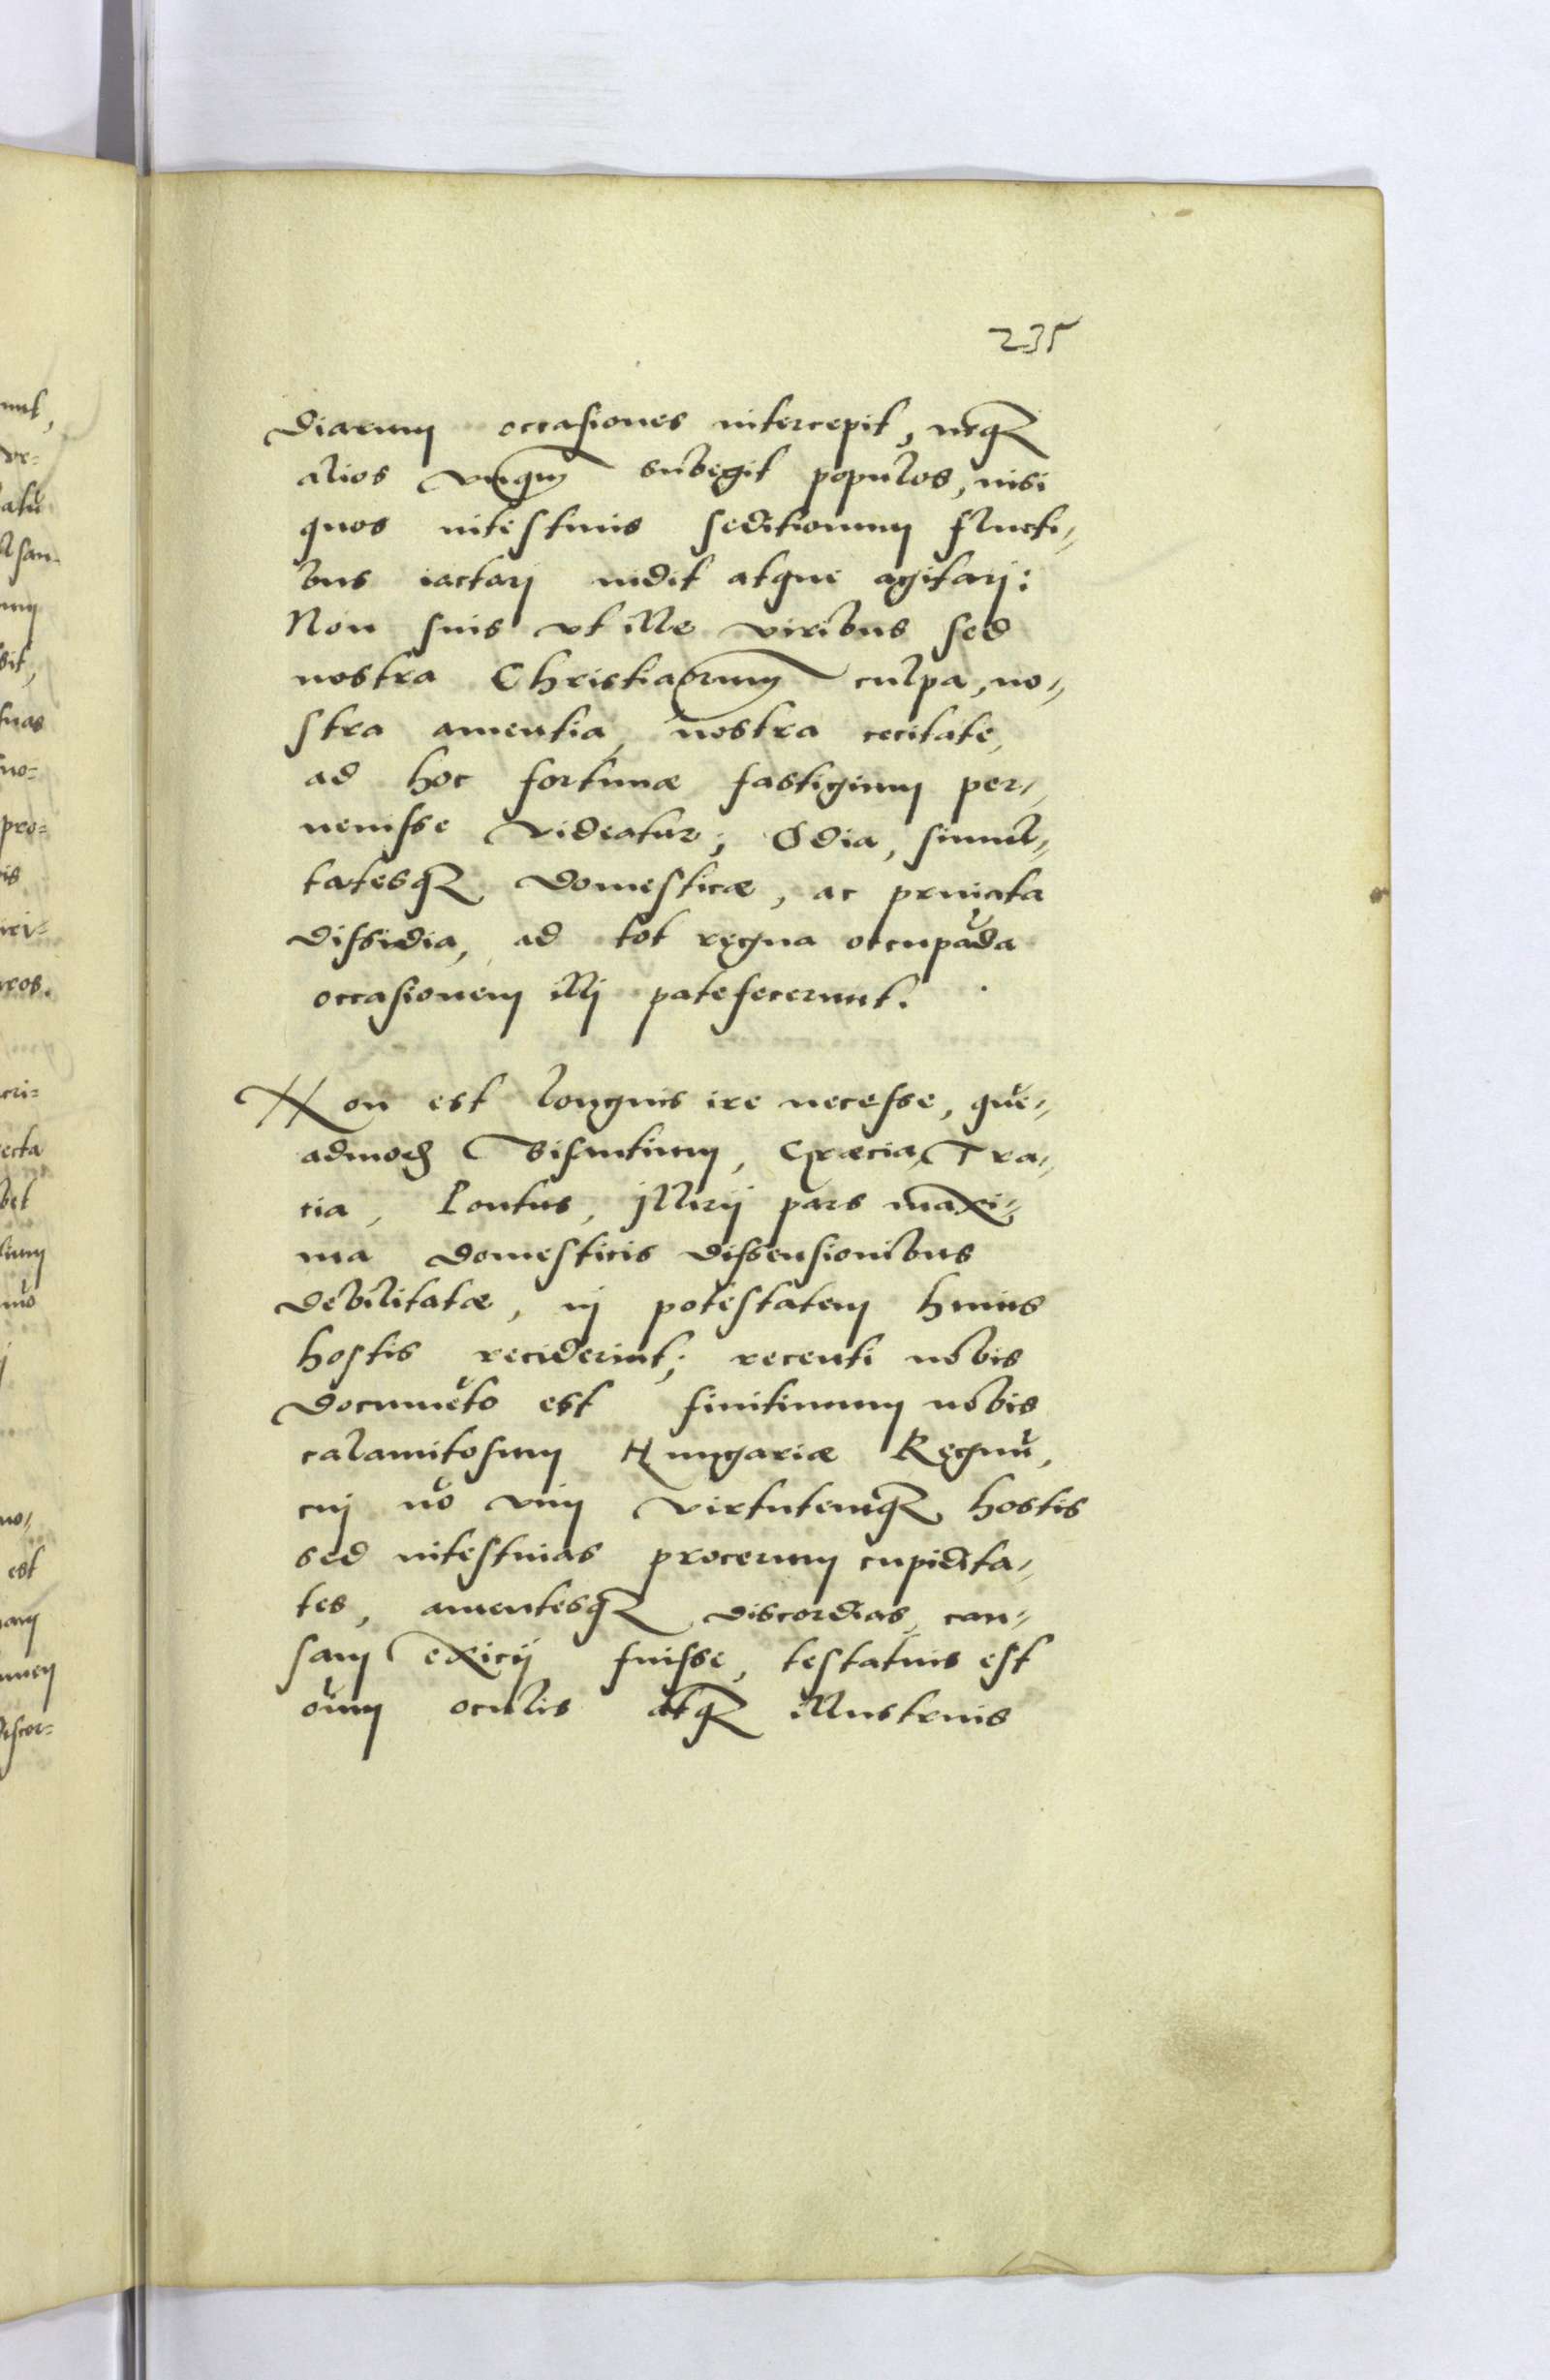 235
diarum occasiones intercepit, neqꝫ
alios vnqm subegit populos, nisi
quos intestinis seditionum flucti„
bus iactarj uidit atque agitarj:
Non suis vt ille viribus sed
nostra Christiaorum culpa, no„
stra amentia, nostra cecitate,
ad hoc fortunæ fastigium per„
uenisse videatur; Odia, simul„
tatesqꝫ domesticæ, ac priuata
dissidia, ad tot regna occupāda
occasionem illj patefecerunt.
Non est longius ire necesse, quē„
admod Bisantium, Græcia, Tra„
tia, Pontus, Jllirij pars maxi„
ma domesticis dissensionibus
debilitatæ, in potestatem huius
hostis reciderint; recenti nobis
documēto est finitimum nobis
calamitosum Hungariæ Regnū,
cuj nō vim virtutemqꝫ hostis
sed intestinas procerum cupidita„
tes, amentesqꝫ discordias, cau„
sam exicij fuisse, testatius est
oīum oculis atqꝫ illustrius